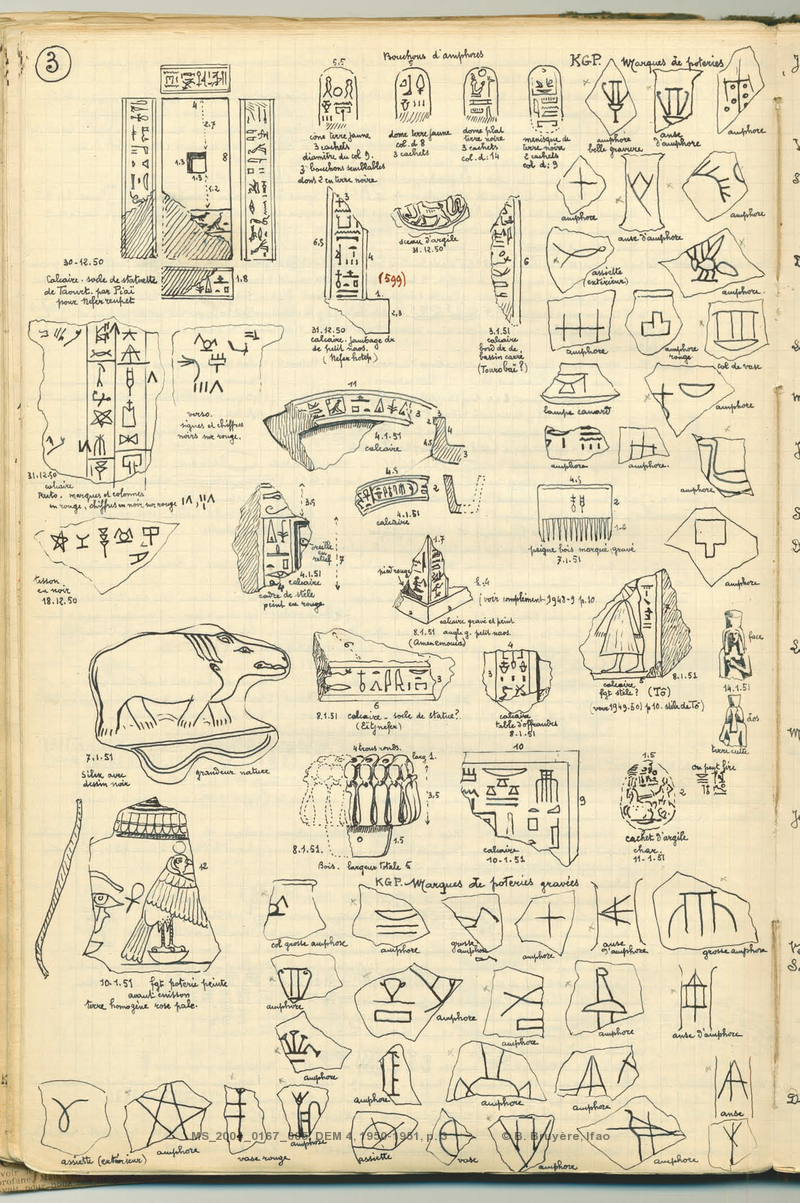 3
Bouchons d'amphores
KGP. Marques de poteries
5.5
cône terre jaune
3 cachets
diamètre du col 9.
3 bouchons semblables
dont 2 en terre noire
dome terre jaune
col. d 8
3 cachets
dome plat
terre noire
3 cachets
col. d: 14
ménisque de
terre noire
2 cachets
col d: 9
amphore
belle gravure
anse
d'amphore
amphore
4
2.7
1.3
1.3
8
1.2
1.8
30-12.50
Calcaire. socle de statuette
de Taourt. par Piaï
pour Nefer renpet
6,5
3
4
1.
2,3
(599)
31.12.50
calcaire. jambage de
de petit naos.
(Nefer hotep)
sceau d'argile
31.12.50
6
3.1.51
calcaire
bord de de
bassin carré
(Touro baï?)
amphore
anse d'amphore
amphore
assiette
(extérieur)
amphore
amphore
amphore
rouge
col de vase
lampe canart
amphore
amphore
amphore.
amphore
amphore
verso.
signes et chiffres
noirs sur rouge.
31.12.50
calcaire
Recto. marques et colonnes
en rouge, chiffres en noir, sur rouge
11
3
2
4
4,5
3
4.1.51
calcaire
4.5
2
4.1.51
calcaire
4.5
2
1.2
peigne bois marque gravé
7.1.51
tesson
en noir
18.12.50
3,5
oreille
en
relief
7
4.1.51
calcaire
cadre de stèle
peint en rouge
1.7
pied rouge
h. 4
(voir complément 1948-9 p.10.
calcaire gravé et peint
8.1.51 angle g. petit naos.
(Amenemouia)
7
5
8.1.51
calcaire
fgt stèle? (Tô)
(voir 1949.50) p 10. stèle de Tô)
face
14.1.51
dos
terre cuite
7.1.51
Silex avec
dessin noir
grandeur nature
3
6
8.1.51 calcaire - socle de statue?
4
3
calcaire
table d'offrandes
8.1.51
4 trous ronds.
larg 1.
3.5
1.5
8.1.51.
Bois. largeur totale 5
10
9
calcaire
10-1.51
1.5
2
on peut lire
cachet d'argile
char.
11-1.51
12
10.1.51 fgt poterie peinte
avant cuisson
terre homogène rose pale.
KGP. Marques de poteries gravées
col grosse amphore
amphore
grosse
amphore
amphore
anse
d'amphore
grosse amphore
amphore
amphore
amphore
amphore
anse d'amphore
amphore
amphore
amphore
amphore
anse
assiette (extérieur)
amphore
vase rouge
amphore
assiette
vase
amphore
amphore
© B. Bruyère, Ifao